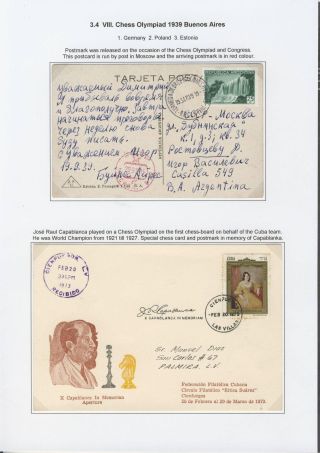 3.4 VIII. Chess Olympiad 1939 Buenos Aires
1. Germany 2. Poland 3. Estonia
Postmark was released on the occasion of the Chess Olympiad and Congress.
This postcard is run by post in Moscow and the arriving postmark is in red colour.
TARJETA POSTAL
СССР - Москва
к. 1, д. 3, кв. 34
Игор Василевич
Casilla 549
B.A. Argentina
уважаемый Димитрий
У прибываю
благополучно.
начинаются
через неделю снова
буду писать.
с уважением Игор
13.9.39. Буенос Айрес
José Raul Capablanca played on a Chess Olympiad on the first chess-board on behalf of the Cuba team.
He was World Champion from 1921 till 1927. Special chess card and postmark in memory of Capablanka.
CIENFUEGOS, L.V.
FEB 20
1973
RECIBIDO
X CAPABLANCA IN MEMORIAM
CIENFUEGOS
FEB 20 1973
LAS VILLAS
CUBA
Sr. Manuel Diaz
San Carlos # 67
Palmira L.V.
X Capablanca In Memoriam
Apertura
Federación Filatélica Cubana
Círculo Filatélico
Cienfuegos
20 de Febrero al 20 de Marzo de 1973.